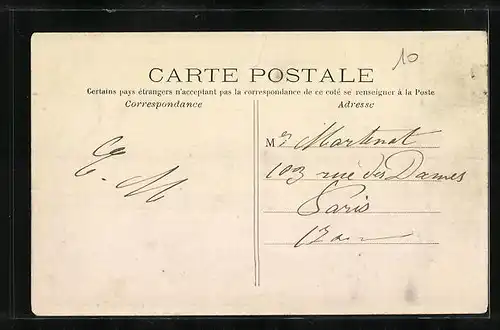 10
CARTE POSTALE
Certains pays étrangers n'acceptant pas la correspondance de ce coté se renseigner à la Poste
Correspondance
Adresse
E. M
Mr Martinat
103 rue des Dames
Paris
17